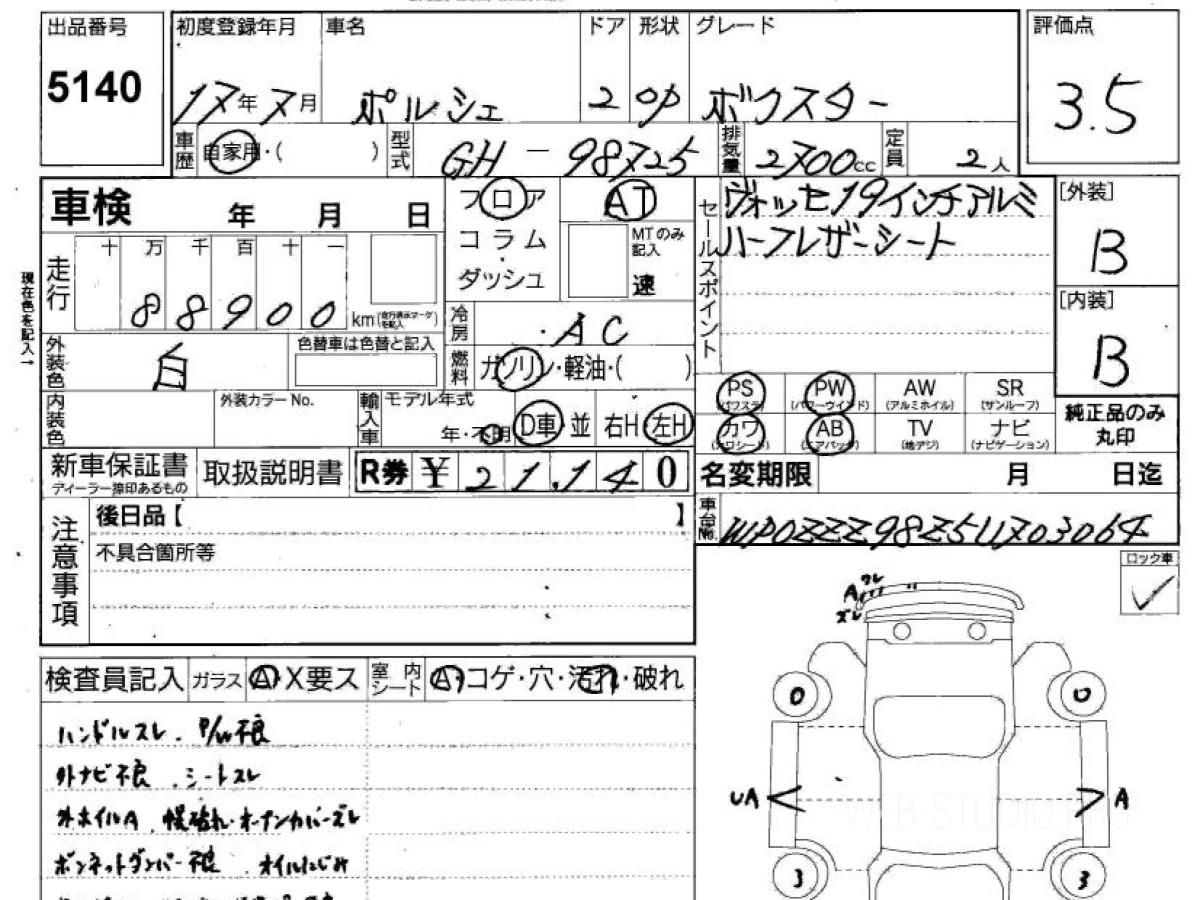 出品番号 初度登録年月 車名 ドア 形状 グレード 評価点
5140 17年7月 ポルシェ 2 OP ボクスター 3.5
車歴 自家用・( ) 型式 GH-98725 排気量 2700cc 定員 2人
車検 年 月 日
フロア AT
コラム・ MTのみ記入
ダッシュ 速
セールスポイント ヴォッセ19インチアルミ
ハーフレザーシート
[外装] B
[内装] B
現在色を記入→
走行 十 万 千 百 十 一
88900 km(走行表示マークを記入)
冷房 AC
外装色 白 色替車は色替と記入
燃料 ガソリン・軽油・( )
内装色 外装カラーNo. 輸入車 モデル年式
年・不明 D車 並 右H 左H
PS(パワステ) PW(パワーウインド) AW(アルミホイル) SR(サンルーフ)
カワ(カワシート) AB(エアバッグ) TV(地デジ) ナビ(ナビゲーション)
純正品のみ丸印
新車保証書 ディーラー捺印あるもの 取扱説明書 R券 ¥21,140
名変期限 月 日迄
車台No. WP0ZZZ98Z5U703064
注意事項 後日品【 】
不具合箇所等
ロック車 ✓
A ワレ
ズレ
検査員記入 ガラス A・X要ス 室内シート A・コゲ・穴・汚れ・破れ
ハンドルスレ . P/W不良
外ナビ不良 . シートスレ
外ホイルA . 幌破れ・オープンカバーズレ
ボンネットダンパー不良 . オイルにじみ
0 0
UA A
3 3
WEB-STUDIO